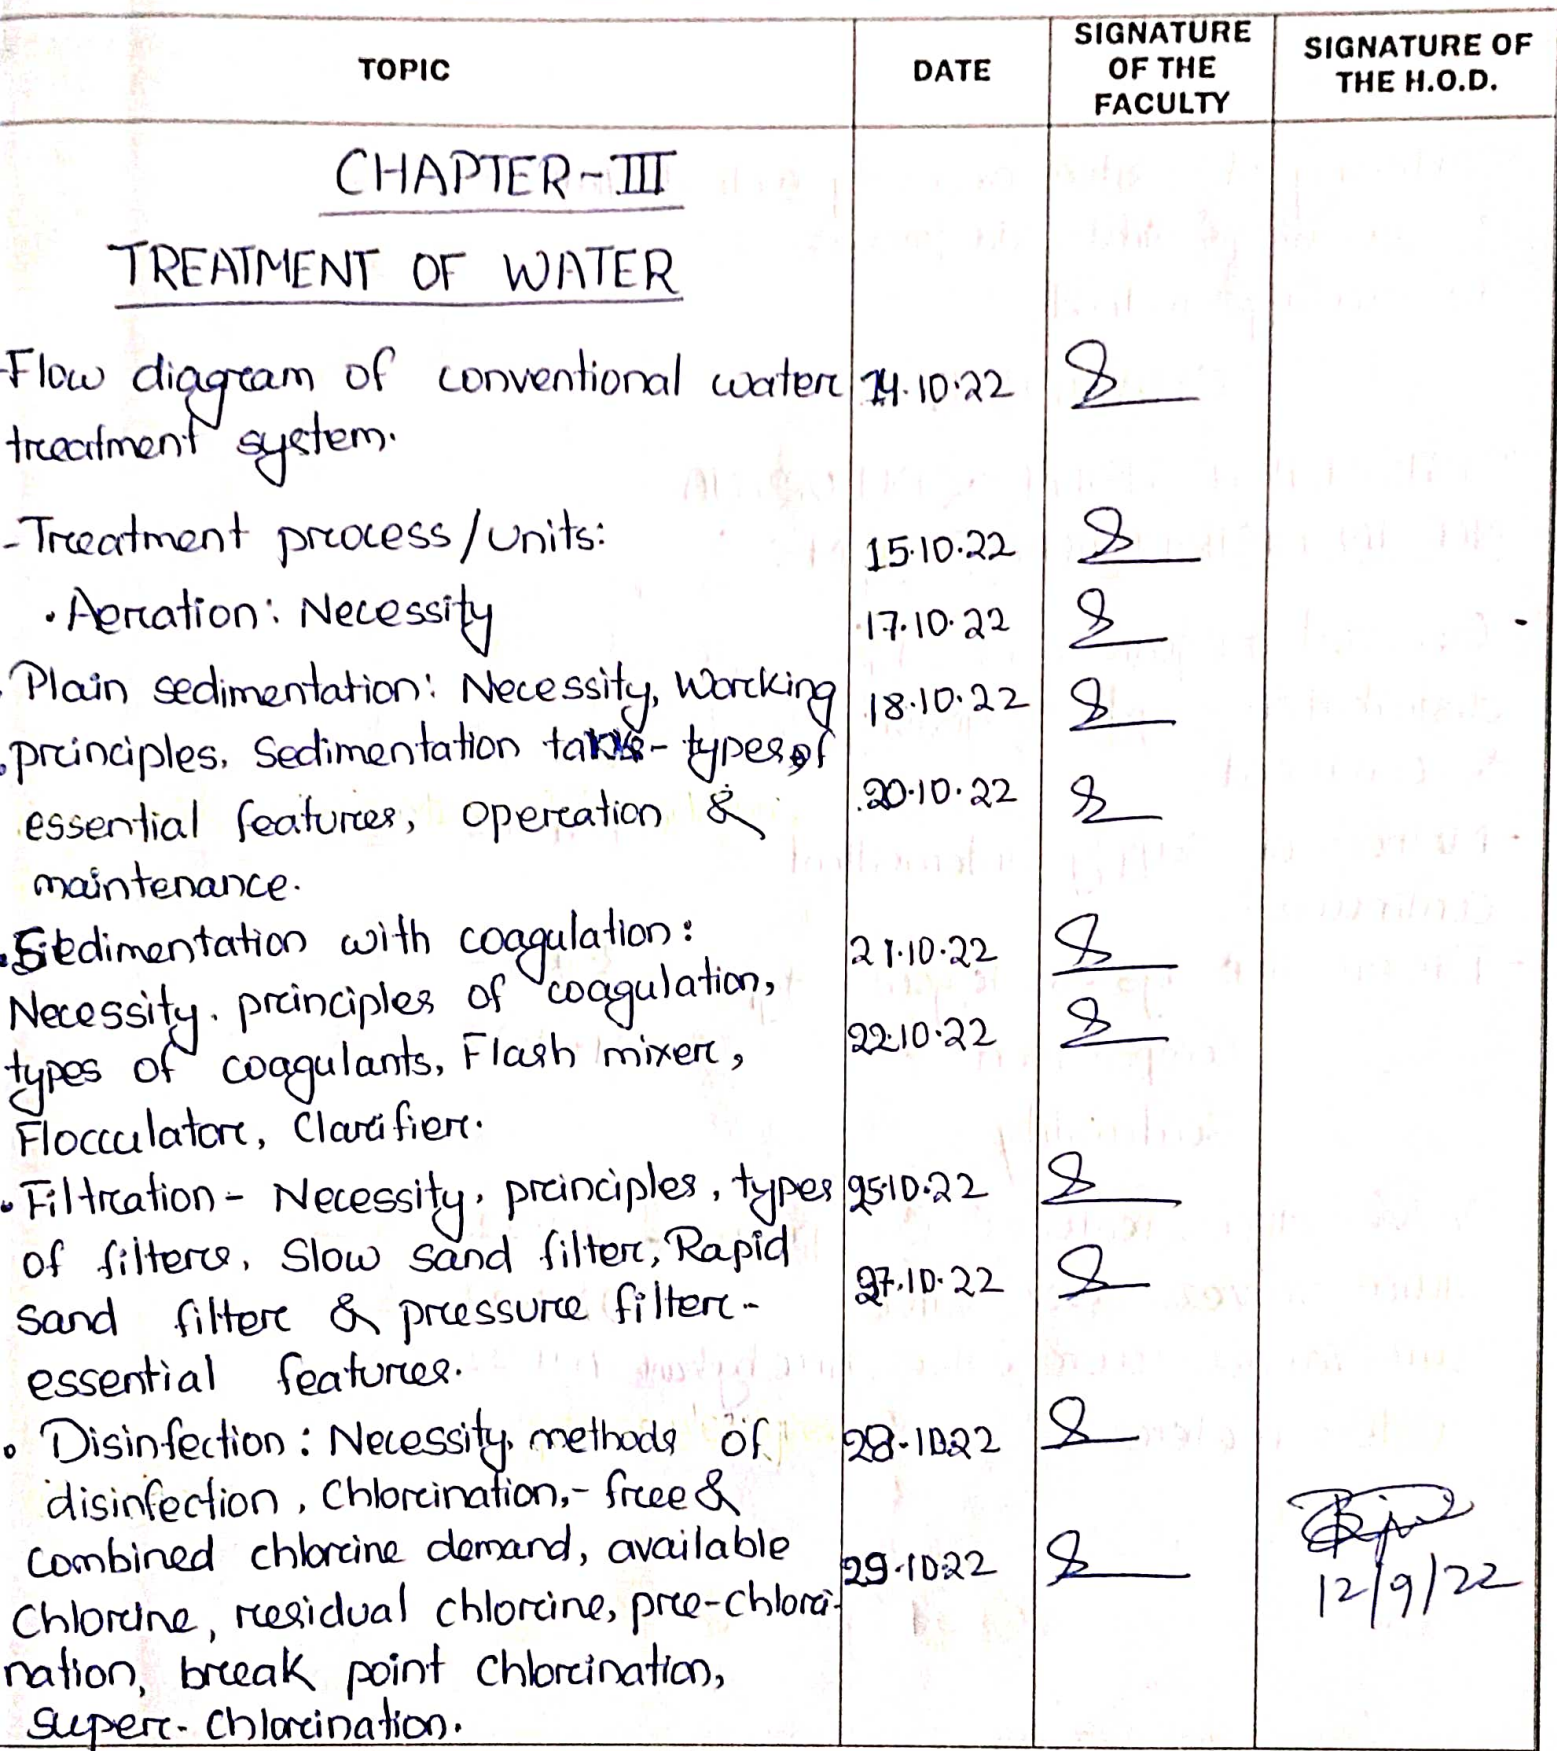 TOPIC DATE SIGNATURE OF THE FACULTY SIGNATURE OF THE H.O.D.
CHAPTER-III
TREATMENT OF WATER
-Flow diagram of conventional water 14.10.22
treatment system.
-Treatment process/units: 15.10.22
• Aeration: Necessity 17.10.22
. Plain sedimentation: Necessity, Working 18.10.22
. principles, Sedimentation tanks - types of
essential features, operation & 20.10.22
maintenance.
. Sedimentation with coagulation: 21.10.22
Necessity, principles of coagulation,
types of coagulants, Flash mixer, 22.10.22
Flocculator, Clarifier.
• Filtration - Necessity, principles, types 25.10.22
of filters, Slow sand filter, Rapid 27.10.22
sand filter & pressure filter-
essential features.
• Disinfection: Necessity, methods of 28.10.22
disinfection, Chlorination,- free &
combined chlorine demand, available 29.10.22
Chlorine, residual chlorine, pre-chlori- 12/9/22
nation, break point chlorination,
super-chlorination.